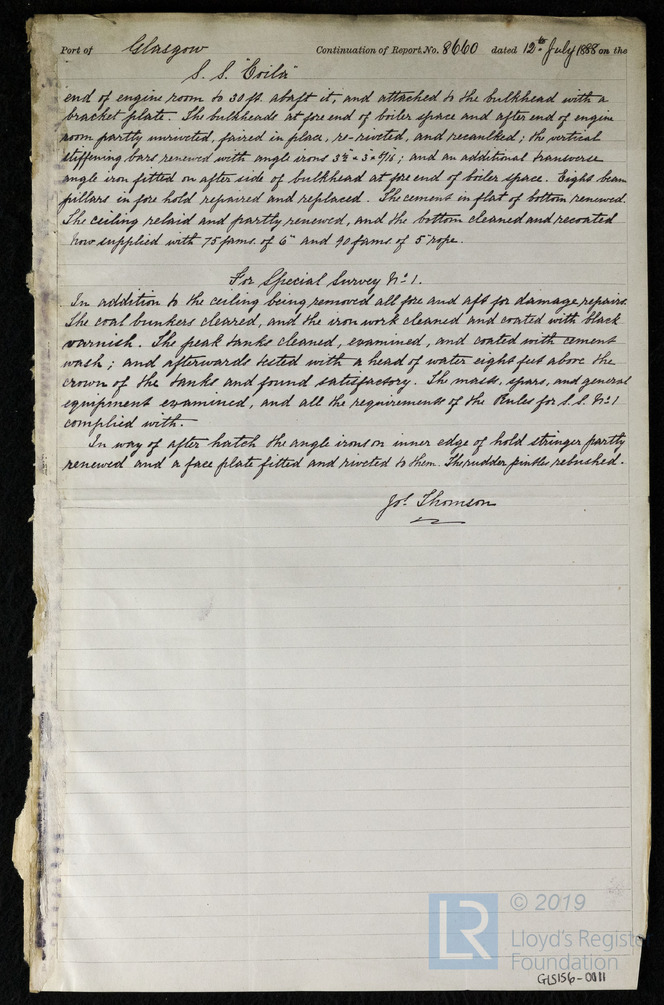 Port of Glasgow Continuation of Report No. 8660 dated 12th July 1888 on the
S. S. "Coila"
end of engine room to 30 ft. abaft it, and attached to the bulkhead with a
bracket plate. The bulkheads at fore end of boiler space and after end of engine
room partly unriveted, faired in place, re-riveted, and recaulked; the vertical
stiffening bars renewed with angle irons 3½ x 3 x 7/16; and an additional transverse
angle iron fitted on after side of bulkhead at fore end of boiler space. Eight beam
pillars in fore hold repaired and replaced. The cement in flat of bottom renewed.
The ceiling relaid and partly renewed, and the bottom cleaned and recoated
now supplied with 75 fams of 6" and 90 fams of 5" rope.
For Special Survey No. 1.
In addition to the ceiling being removed all fore and aft for damage repairs.
The coal bunkers cleared, and the iron work cleaned and coated with black
varnish. The peak tanks cleaned, examined, and coated with cement
wash; and afterwards tested with a head of water eight feet above the
crown of the tanks and found satisfactory. The masts, spars, and general
equipment examined, and all the requirements of the Rules for S.S. No. 1
complied with.
In way of after hatch the angle irons on inner edge of hold stringer partly
renewed and a face plate fitted and riveted to them. The rudder pintles rebushed.
Jos. Thomson
LR
© 2019
Lloyd's Register
Foundation
GLS156-0011